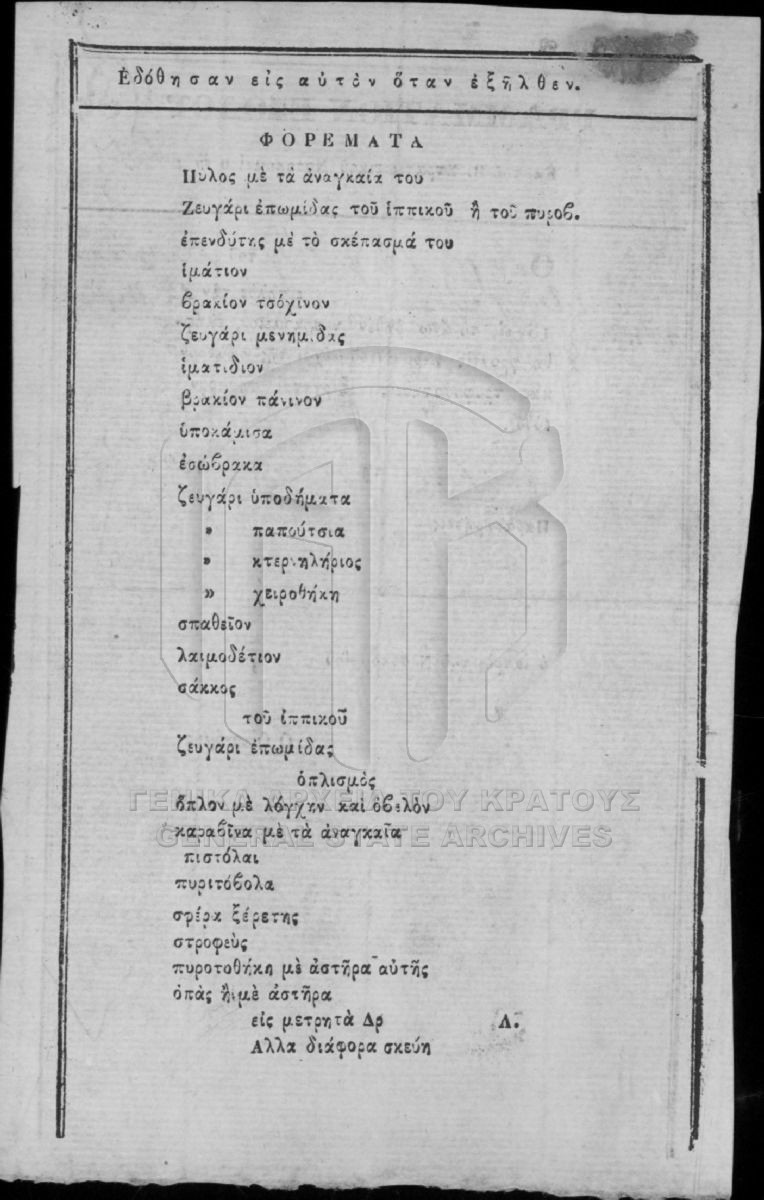 Ἐδόθησαν εἰς αὐτὸν ὅταν ἐξῆλθεν.
ΦΟΡΕΜΑΤΑ
Πῖλος μὲ τὰ ἀναγκαῖα του
Ζευγάρι ἐπωμίδας τοῦ ἱππικοῦ ἢ τοῦ πυροβ.
ἐπενδύτης μὲ τὸ σκέπασμά του
ἱμάτιον
βρακίον τσόχινον
ζευγάρι
ἱματίδιον
βρακίον πάνινον
ὑποκάμισα
ἐσώβρακα
ζευγάρι ὑποδήματα
» παπούτσια
» κτερνηλήριος
» χειροθήκη
σπαθεῖον
λαιμοδέτιον
σάκκος
τοῦ ἱππικοῦ
ζευγάρι ἐπωμίδας
ὁπλισμὸς
ὅπλον μὲ λόγχην καὶ ὀβελὸν
καραβῖνα μὲ τὰ ἀναγκαῖα
πιστόλαι
πυριτόβολα
σφέρα ξέρετης
στροφεὺς
πυροτοθήκη μὲ ἀστῆρα αὐτῆς
ὀπὰς ἢ μὲ ἀστῆρα
εἰς μετρητὰ Δρ Λ.
Αλλα διάφορα σκεύη
ΓΕΝΙΚΑ ΑΡΧΕΙΑ ΤΟΥ ΚΡΑΤΟΥΣ
GENERAL STATE ARCHIVES